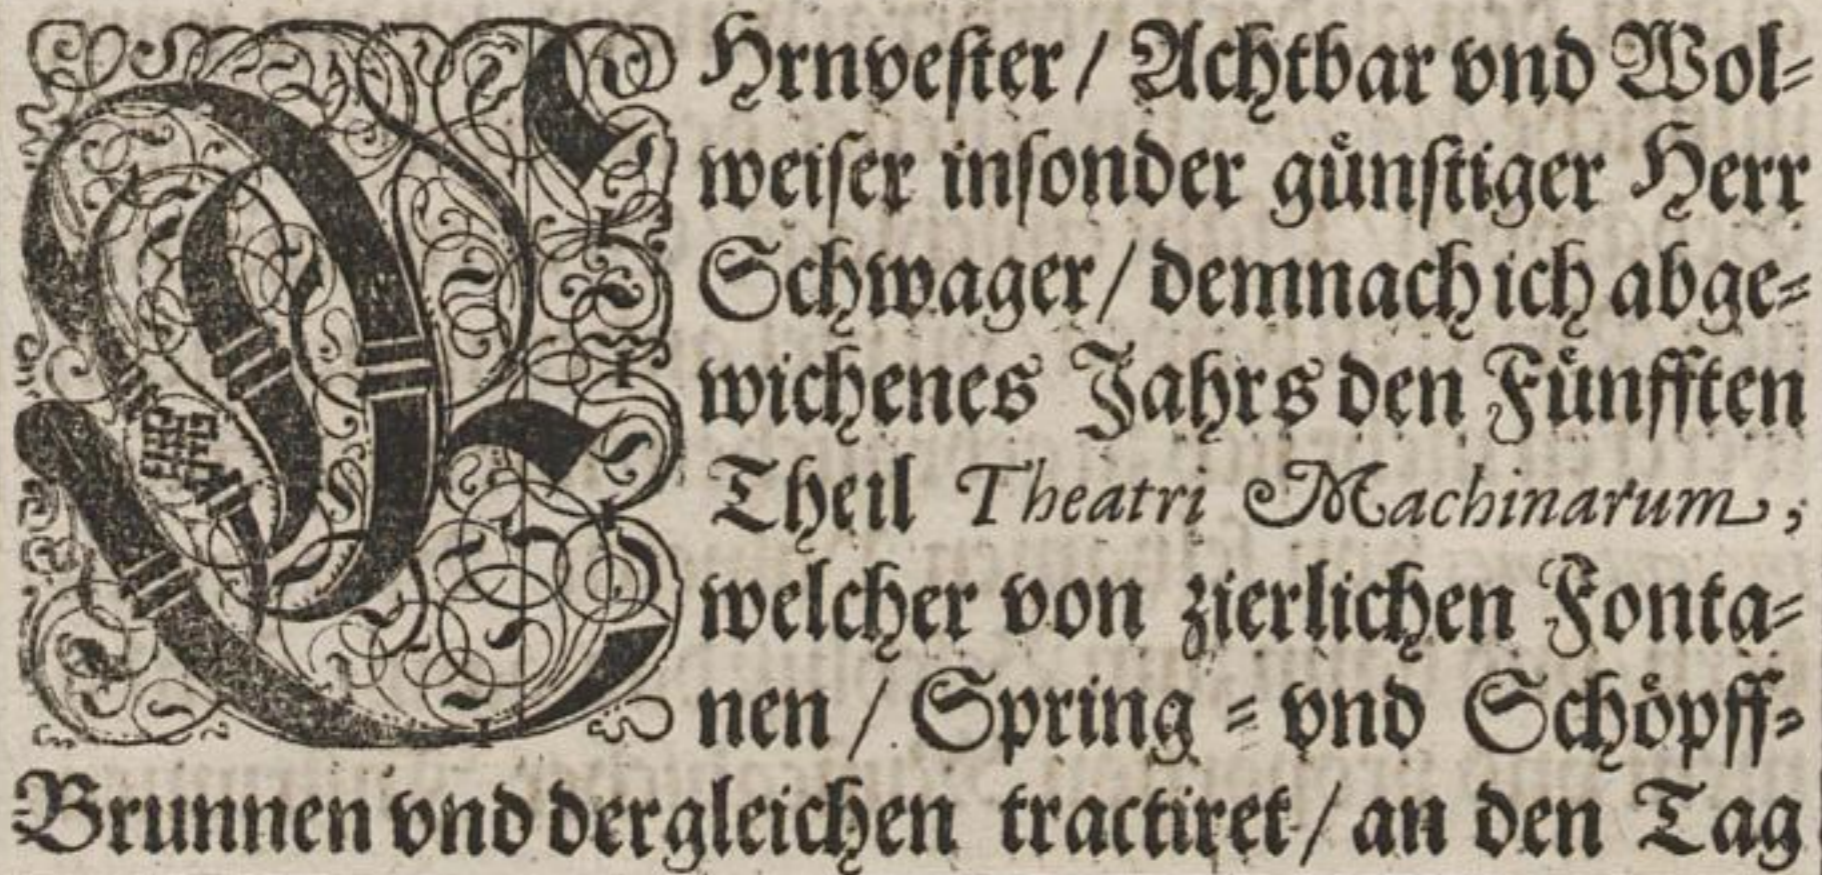 EHrnvester / Achtbar vnd Wol⸗
weiser insonder gůnstiger Herr
Schwager / demnach ich abge⸗
wichenes Jahrs den Fůnfften
Theil Theatri Machinarum,
welcher von zierlichen Fonta⸗
nen / Spring⸗ vnd Schöpff⸗
Brunnen vnd dergleichen tractiret / an den Tag